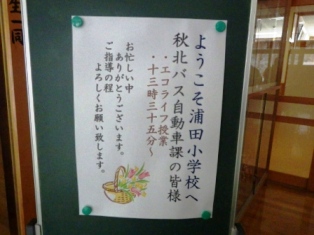 ようこそ浦田小学校へ
秋北バス自動車課の皆様
・エコライフ授業
・十三時三十五分〜
お忙しい中
ありがとうございます。
ご指導の程
よろしくお願い致します。